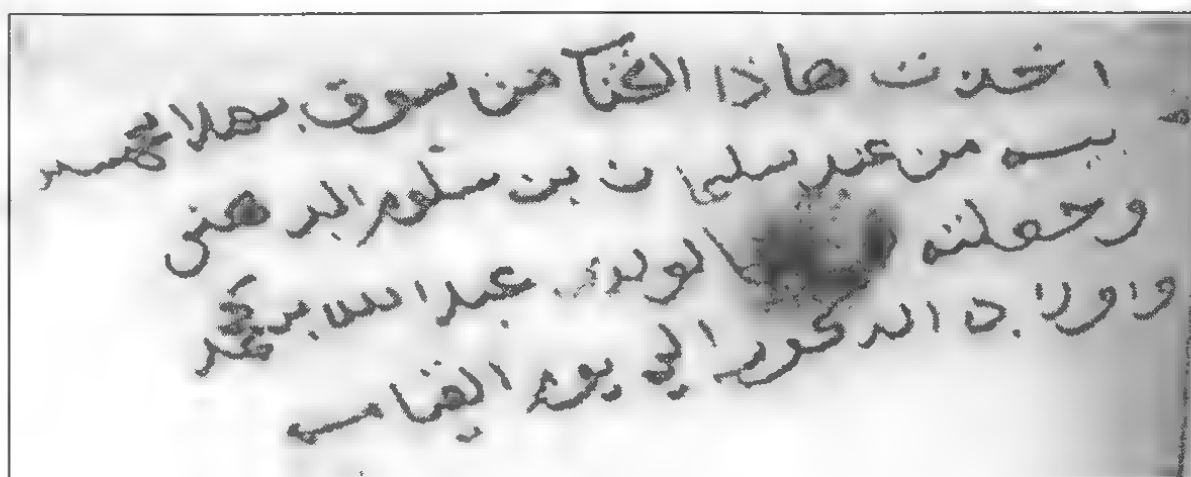 اخذت هاذا الكتا من سوق بهلا
من عند سليمان بن سلوم
وجعلته لولدي عبد الله بن
واولاد الذكور الى يوم القيامه